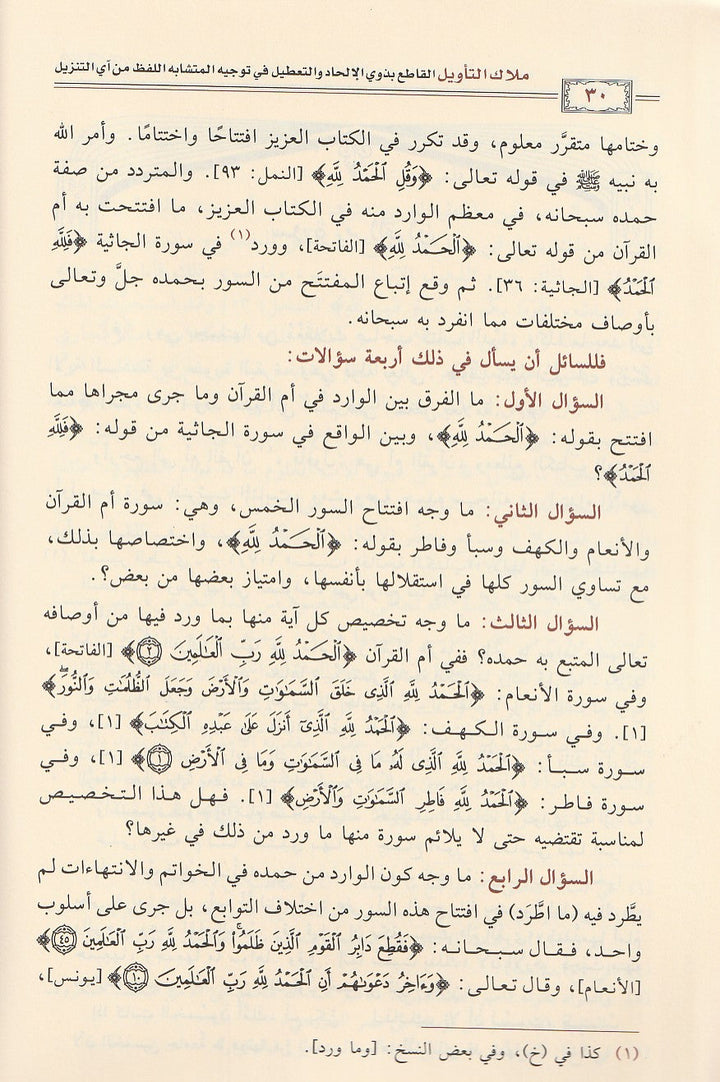 ملاك التأويل القاطع بذوي الإلحاد والتعطيل في توجيه المتشابه اللفظ من آي التنزيل
٣٠
وختامها متقرَّر معلوم، وقد تكرر في الكتاب العزيز افتتاحًا واختتامًا. وأمر الله
به نبيه ﷺ في قوله تعالى: ﴿وَقُلِ ٱلۡحَمۡدُ لِلَّهِ﴾ [النمل: ٩٣]. والمتردد من صفة
حمده سبحانه، في معظم الوارد منه في الكتاب العزيز، ما افتتحت به أم
القرآن من قوله تعالى: ﴿ٱلۡحَمۡدُ لِلَّهِ﴾ [الفاتحة]، وورد(١) في سورة الجاثية ﴿فَلِلَّهِ
ٱلۡحَمۡدُ﴾ [الجاثية: ٣٦]. ثم وقع إتباع المفتتَح من السور بحمده جلَّ وتعالى
بأوصاف مختلفات مما انفرد به سبحانه.
فللسائل أن يسأل في ذلك أربعة سؤالات:
السؤال الأول: ما الفرق بين الوارد في أم القرآن وما جرى مجراها مما
افتتح بقوله: ﴿ٱلۡحَمۡدُ لِلَّهِ﴾، وبين الواقع في سورة الجاثية من قوله: ﴿فَلِلَّهِ
ٱلۡحَمۡدُ﴾؟
السؤال الثاني: ما وجه افتتاح السور الخمس، وهي: سورة أم القرآن
والأنعام والكهف وسبأ وفاطر بقوله: ﴿ٱلۡحَمۡدُ لِلَّهِ﴾، واختصاصها بذلك،
مع تساوي السور كلها في استقلالها بأنفسها، وامتياز بعضها من بعض؟.
السؤال الثالث: ما وجه تخصيص كل آية منها بما ورد فيها من أوصافه
تعالى المتبع به حمده؟ ففي أم القرآن ﴿ٱلۡحَمۡدُ لِلَّهِ رَبِّ ٱلۡعَٰلَمِينَ ٢﴾ [الفاتحة]،
وفي سورة الأنعام: ﴿ٱلۡحَمۡدُ لِلَّهِ ٱلَّذِي خَلَقَ ٱلسَّمَٰوَٰتِ وَٱلۡأَرۡضَ وَجَعَلَ ٱلظُّلُمَٰتِ وَٱلنُّورَۖ﴾
[١]. وفي سورة الكهف: ﴿ٱلۡحَمۡدُ لِلَّهِ ٱلَّذِيٓ أَنزَلَ عَلَىٰ عَبۡدِهِ ٱلۡكِتَٰبَ﴾ [١]، وفي
سورة سبأ: ﴿ٱلۡحَمۡدُ لِلَّهِ ٱلَّذِي لَهُۥ مَا فِي ٱلسَّمَٰوَٰتِ وَمَا فِي ٱلۡأَرۡضِ ١﴾ [١]، وفي
سورة فاطر: ﴿ٱلۡحَمۡدُ لِلَّهِ فَاطِرِ ٱلسَّمَٰوَٰتِ وَٱلۡأَرۡضِ﴾ [١]. فهل هذا التخصيص
لمناسبة تقتضيه حتى لا يلائم سورة منها ما ورد من ذلك في غيرها؟
السؤال الرابع: ما وجه كون الوارد من حمده في الخواتم والانتهاءات لم
يطَّرد فيه (ما اطَّرَد) في افتتاح هذه السور من اختلاف التوابع، بل جرى على أسلوب
واحد، فقال سبحانه: ﴿فَقُطِعَ دَابِرُ ٱلۡقَوۡمِ ٱلَّذِينَ ظَلَمُواْۚ وَٱلۡحَمۡدُ لِلَّهِ رَبِّ ٱلۡعَٰلَمِينَ ٤٥﴾
[الأنعام]، وقال تعالى: ﴿وَءَاخِرُ دَعۡوَىٰهُمۡ أَنِ ٱلۡحَمۡدُ لِلَّهِ رَبِّ ٱلۡعَٰلَمِينَ ١٠﴾ [يونس]،
(١) كذا في (خ)، وفي بعض النسخ: [وما ورد].